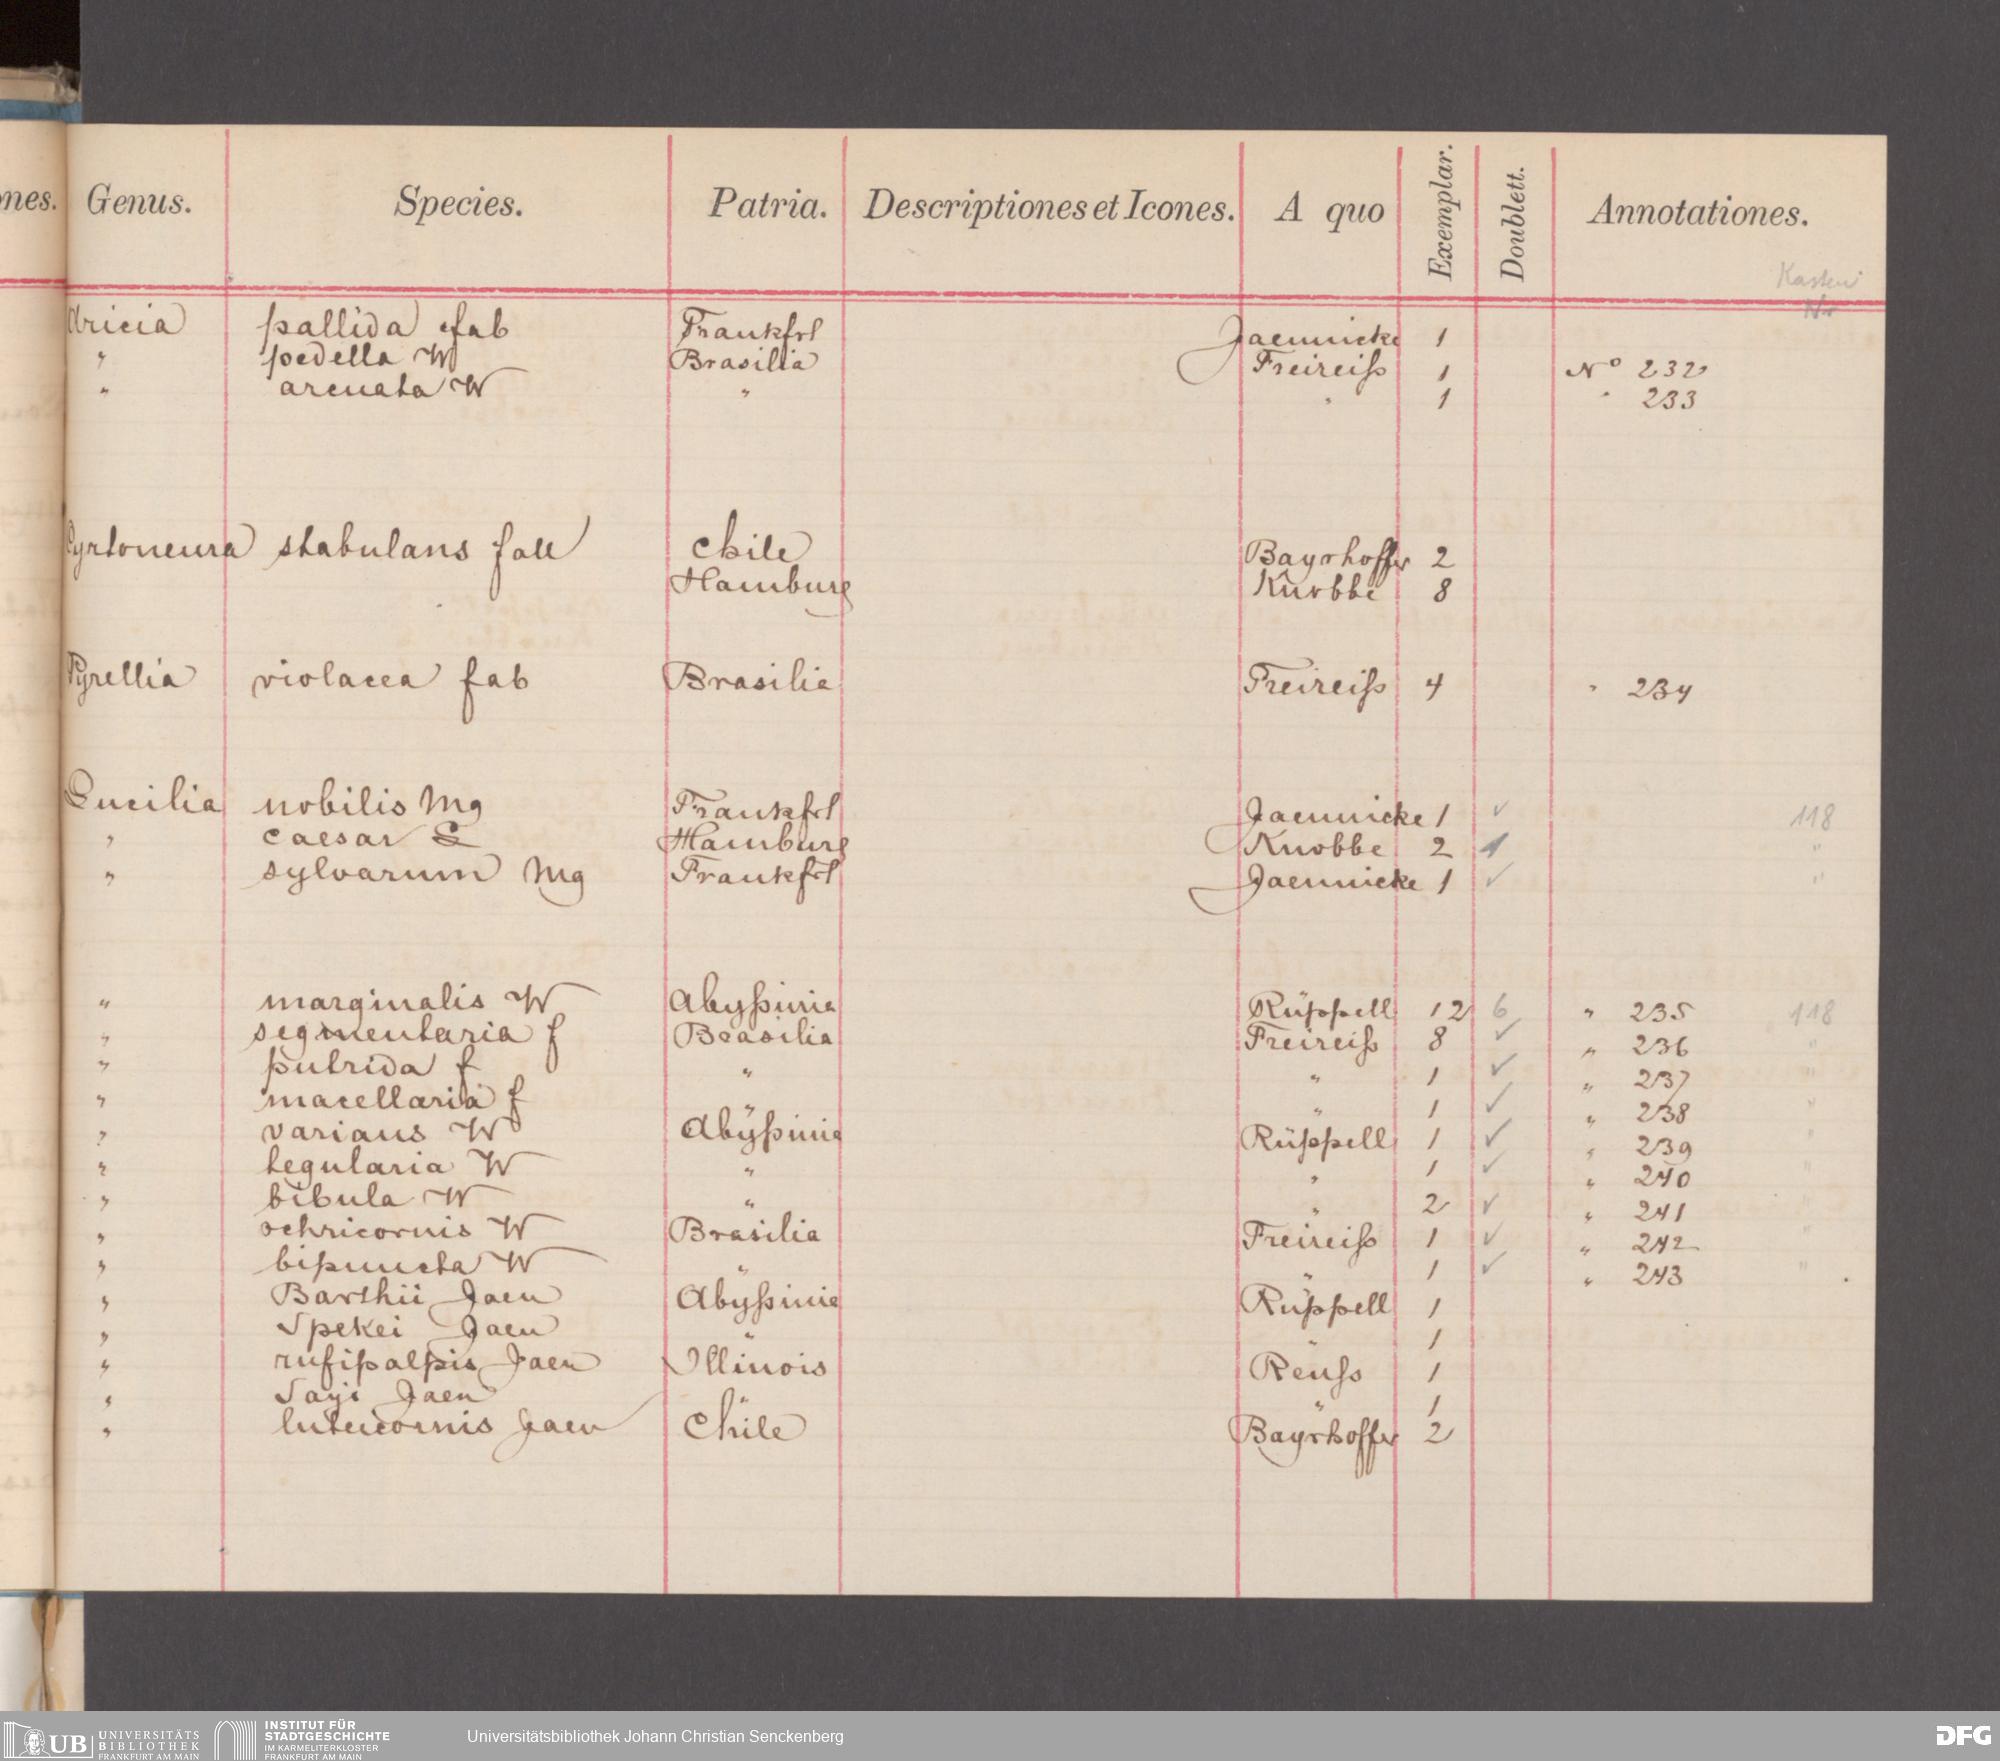 nes. Genus. Species. Patria. Descriptiones et Icones. A quo Exemplar. Doublett. Annotationes.
Kasten
Nr
Aricia pallida fab Frankfrt Jaennicke 1
" pedella W Brasilia Freireiß 1 No 232
" arcuata W " " 1 " 233
Cyrtoneura stabulans fall Chile Bayrhoffer 2
Hamburg Knobbe 8
Pyrellia violacea fab Brasilia Freireiß 4 " 234
Lucilia nobilis Mg Frankfrt Jaennicke 1 ✓ 118
" caesar L Hamburg Knobbe 2 1 "
" sylvarum Mg Frankfrt Jaennicke 1 ✓ "
" marginalis W Abyßinia Rüppell 12 6 " 235 118
" segmentaria f Brasilia Freireiß 8 ✓ " 236 "
" putrida f " " 1 ✓ " 237 "
" macellaria f " " 1 ✓ " 238 "
" varians W Abyßinia Rüppell 1 ✓ " 239 "
" tegularia W " " 1 ✓ " 240 "
" bibula W " " 2 ✓ " 241 "
" ochricornis W Brasilia Freireiß 1 ✓ " 242 "
" bipuncta W " " 1 ✓ " 243 "
" Barthii Jaen Abyßinia Rüppell 1
" Spekei Jaen " " 1
" rufipalpis Jaen Illinois Reuss 1
" Sayi Jaen " " 1
" luteicornis Jaen Chile Bayrhoffer 2
UB UNIVERSITÄTS
BIBLIOTHEK
FRANKFURT AM MAIN
INSTITUT FÜR
STADTGESCHICHTE
IM KARMELITERKLOSTER
FRANKFURT AM MAIN
Universitätsbibliothek Johann Christian Senckenberg
DFG